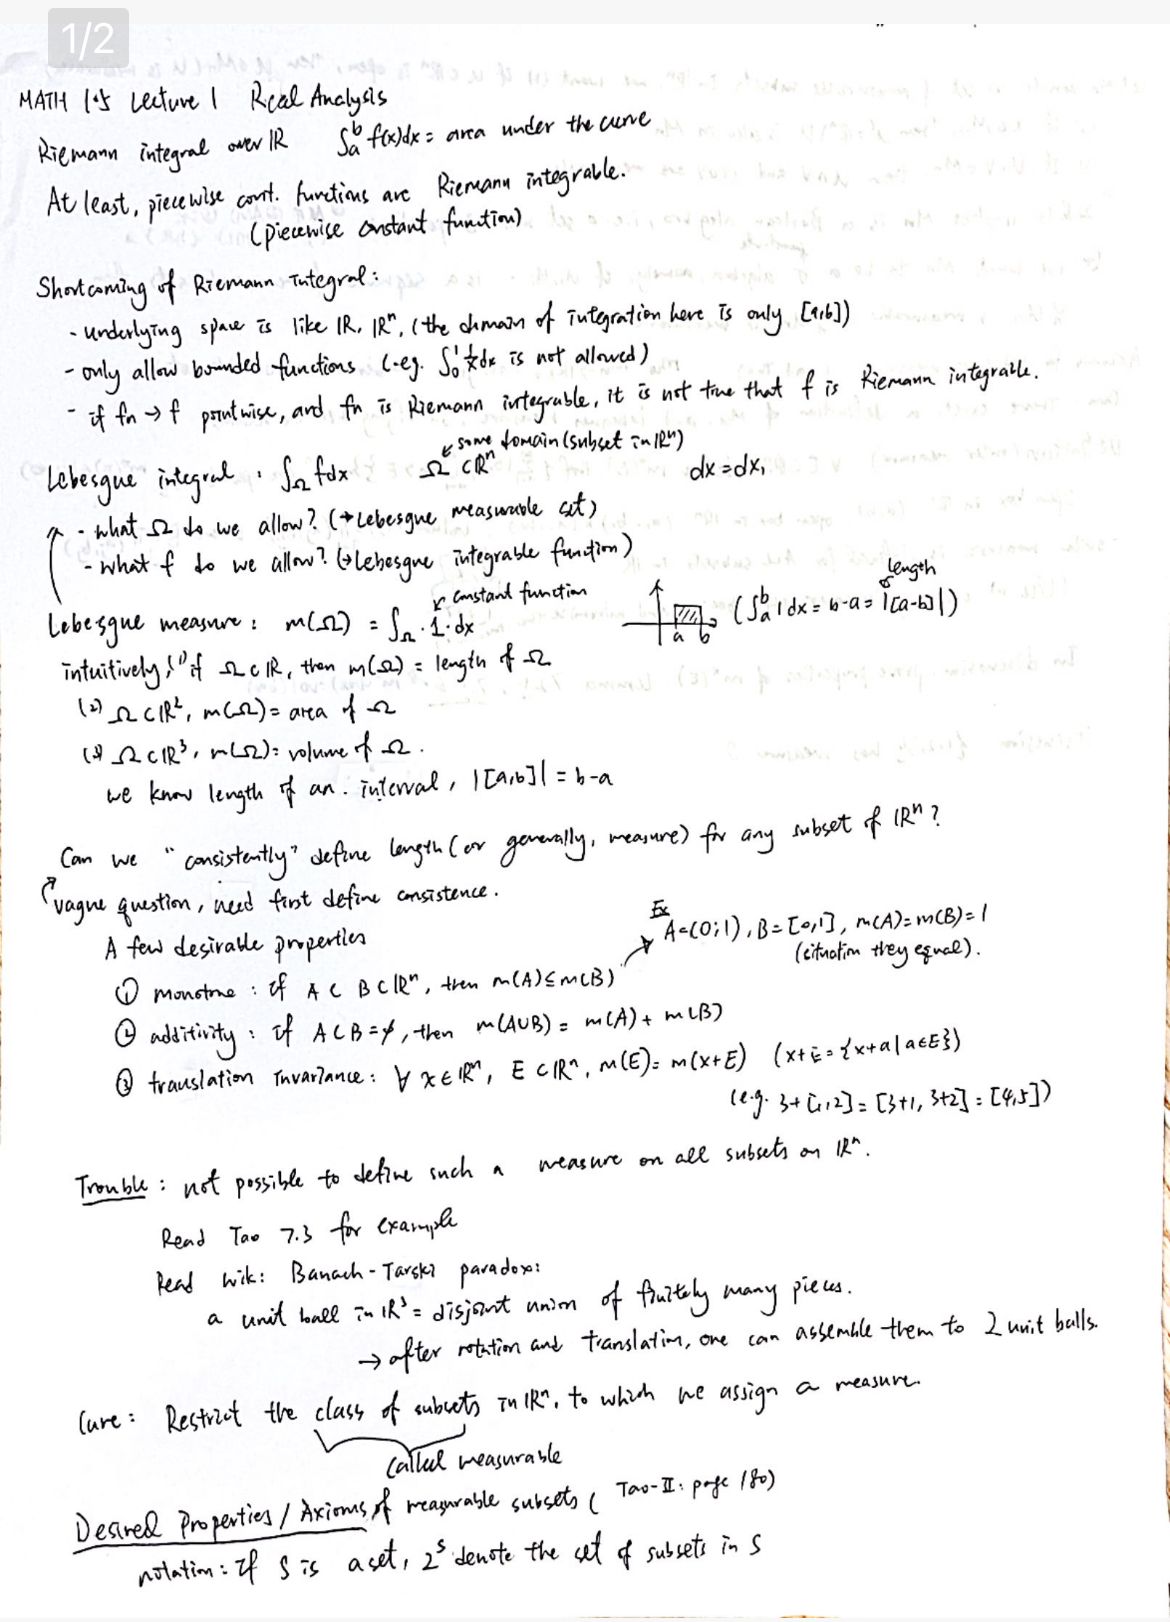 1/2
MATH 105 Lecture 1 Real Analysis
Riemann integral over ℝ ∫ₐᵇ f(x)dx = area under the curve
At least, piecewise cont. functions are Riemann integrable.
(piecewise constant function)
Shortcoming of Riemann Integral:
- underlying space is like ℝ, ℝⁿ, (the domain of integration here is only [a,b])
- only allow bounded functions (e.g. ∫₀¹ 1/x dx is not allowed)
- if fn → f pointwise, and fn is Riemann integrable, it is not true that f is Riemann integrable.
Lebesgue integral : ∫_Ω fdx Ω ⊂ ℝⁿ ↙ some domain (subset in ℝⁿ) dx = dx₁
- what Ω do we allow? (→ Lebesgue measurable set)
- what f do we allow? (→ Lebesgue integrable function)
↙ constant function length
Lebesgue measure : m(Ω) = ∫_Ω · 1 · dx a b (∫ₐᵇ 1 dx = b-a = |[a-b]|)
intuitively, (1) if Ω ⊂ ℝ, then m(Ω) = length of Ω
(2) Ω ⊂ ℝ², m(Ω) = area of Ω
(3) Ω ⊂ ℝ³, m(Ω) = volume of Ω.
we know length of an interval, |[a,b]| = b-a
Can we "consistently" define length (or generally, measure) for any subset of ℝⁿ?
vague question, need first define consistence.
A few desirable properties
Ex A=(0;1), B=[0,1], m(A)=m(B)=1
(situation they equal).
① monotone : if A ⊂ B ⊂ ℝⁿ, then m(A) ≤ m(B)
② additivity : if A ⊂ B = ∅, then m(A∪B) = m(A) + m(B)
③ translation invariance : ∀ x ∈ ℝⁿ, E ⊂ ℝⁿ, m(E) = m(x+E) (x+E = {x+a | a∈E})
(e.g. 3+[1,2] = [3+1, 3+2] = [4,5])
Trouble : not possible to define such a measure on all subsets on ℝⁿ.
Read Tao 7.3 for example
Read wiki: Banach-Tarski paradox:
a unit ball in ℝ³ = disjoint union of finitely many pieces.
→ after rotation and translation, one can assemble them to 2 unit balls.
Cure : Restrict the class of subsets in ℝⁿ, to which we assign a measure.
called measurable
Desired Properties / Axioms of measurable subsets ( Tao-II: page 180)
notation : if S is a set, 2ˢ denote the set of subsets in S